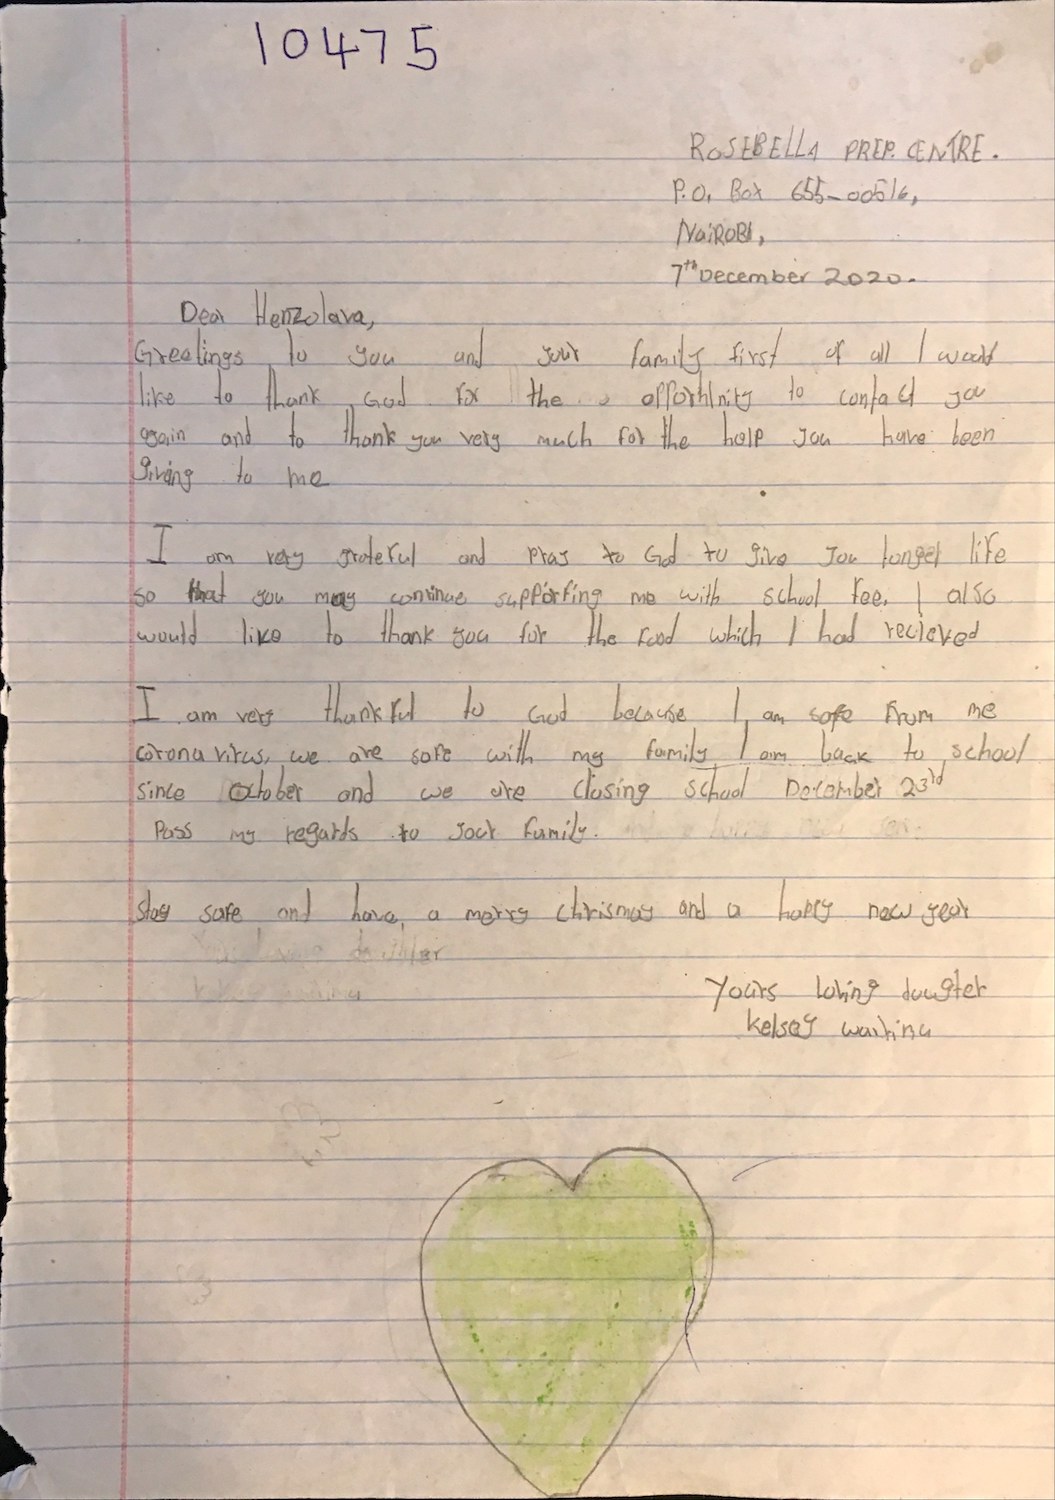 10475
ROSEBELLA PREP. CENTRE.
P.O. Box 655-00516,
NaiROBI,
7th December 2020.
Dear Henzolara,
Greetings to you and your family first of all I would
like to thank God for the opportunity to contact you
again and to thank you very much for the help you have been
giving to me
I am very grateful and pray to God to give you longer life
so that you may continue supporting me with school fee. I also
would like to thank you for the food which I had recieved
I am very thankful to God because I am safe from me
corona virus, we are safe with my family I am back to school
since October and we are closing school December 23rd
Pass my regards to your family.
Stay safe and have a merry chrismas and a happy new year
Yours loving daugter
Kelsey